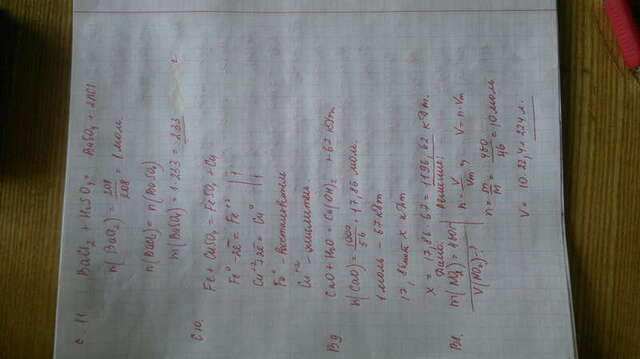 с. 11
BaCl₂ + H₂SO₄ = BaSO₄ + 2HCl
n(BaCl₂) = 208/208 = 1 моль
n(BaCl₂) = n(BaSO₄)
m(BaSO₄) = 1·233 = 233 г
С10. Fe + CuSO₄ = FeSO₄ + Cu
Fe⁰ - 2ē = Fe⁺² | 1
Cu⁺² + 2ē = Cu⁰ | 1
Fe⁰ - восстановитель
Cu⁺² - окислитель
В9 CaO + H₂O = Ca(OH)₂ + 67 кДж
n(CaO) = 1000/56 = 17,86 моль
1 моль - 67 кДж
17,86 моль x кДж
x = 17,86·67 = 1196,62 кДж.
В1. Дано: Решение:
m(NO₂) = 460 г n = V/Vm, V = n·Vm
V(NO₂) - ? n = m/M = 460/46 = 10 моль
V = 10·22,4 = 224 л.